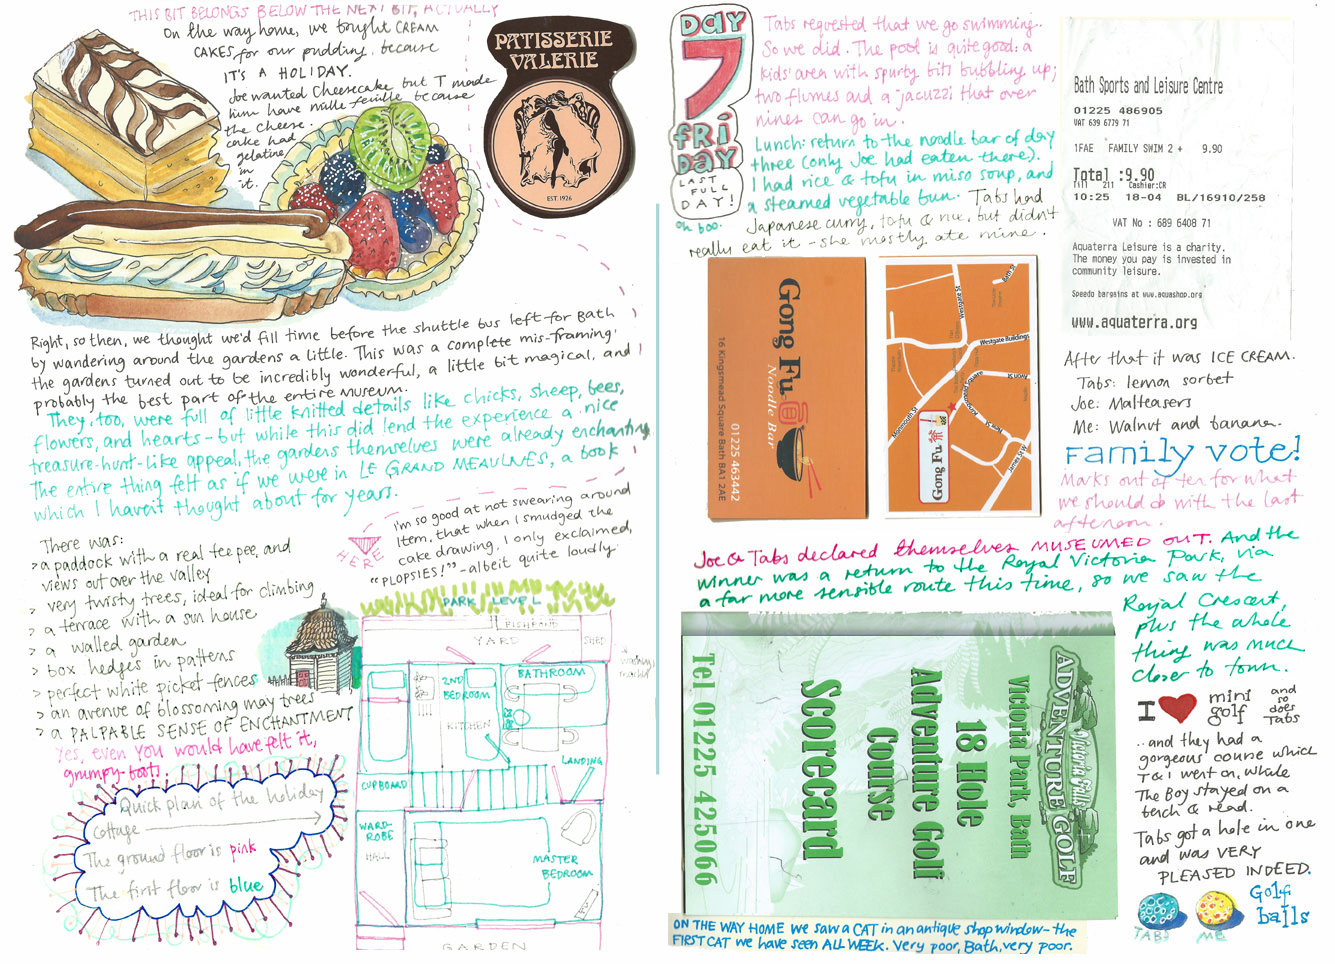 THIS BIT BELONGS BELOW THE NEXT BIT, ACTUALLY
On the way home, we bought CREAM
CAKES for our pudding, because
IT'S A HOLIDAY.
Joe wanted Cheesecake but T made
him have mille feuille because
the cheese-
cake had
gelatine
in
it.
PATISSERIE
VALERIE
EST. 1926
Right, so then, we thought we'd fill time before the shuttle bus left for Bath
by wandering around the gardens a little. This was a complete mis-framing:
the gardens turned out to be incredibly wonderful, a little bit magical, and
probably the best part of the entire museum.
They, too, were full of little knitted details like chicks, sheep, bees,
flowers, and hearts - but while this did lend the experience a nice
treasure-hunt-like appeal, the gardens themselves were already enchanting.
The entire thing felt as if we were in LE GRAND MEAULNES, a book
which I haven't thought about for years.
HERE
I'm so good at not swearing around
Item, that when I smudged the
cake drawing, I only exclaimed,
"PLOPSIES!" - albeit quite loudly.
There was:
> a paddock with a real teepee, and
views out over the valley
> very twisty trees, ideal for climbing
> a terrace with a sun house
> a walled garden
> box hedges in patterns
> perfect white picket fences
> an avenue of blossoming may trees
> a PALPABLE SENSE OF ENCHANTMENT
Yes, even you would have felt it,
grumpy-boots.
Quick plan of the holiday
cottage
The ground floor is pink
The first floor is blue
PARK LEVEL
FISHPOND
YARD
SHED
washing
machine
2ND
BEDROOM
BATHROOM
KITCHEN
LANDING
CUPBOARD
WARD-
ROBE
HALL
MASTER
BEDROOM
TV
GARDEN
DAY
7
FRI
DAY
LAST
FULL
DAY!
oh boo.
Tabs requested that we go swimming.
So we did. The pool is quite good: a
kids' area with spurty bits bubbling up;
two flumes and a jacuzzi that over
nines can go in.
Lunch: return to the noodle bar of day
three (only Joe had eaten there).
I had rice & tofu in miso soup, and
a steamed vegetable bun. Tabs had
Japanese curry, tofu & rice, but didn't
really eat it - she mostly ate mine.
Bath Sports and Leisure Centre
01225 486905
VAT 639 6779 71
1FAE FAMILY SWIM 2 + 9.90
Total :9.90
Till 211 Cashier:CR
10:25 18-04 BL/16910/258
VAT No : 689 6408 71
Aquaterra Leisure is a charity.
The money you pay is invested in
community leisure.
Speedo bargains at www.aquashop.org
www.aquaterra.org
Gong Fu
Noodle Bar
01225 463442
16 Kingsmead Square Bath BA1 2AE
Westgate St
Bath St
Westgate Buildings
Kingsmead Square
Avon St
New St
Monmouth St
James St W
Gong Fu
After that it was ICE CREAM.
Tabs: lemon sorbet
Joe: Malteasers
Me: Walnut and banana.
Family vote!
Marks out of ten for what
we should do with the last
afternoon.
Joe & Tabs declared themselves MUSEUMED OUT. And the
winner was a return to the Royal Victoria Park, via
a far more sensible route this time, so we saw the
Royal Crescent,
plus the whole
thing was much
closer to town.
Tel 01225 425066
Scorecard
Course
Adventure Golf
18 Hole
Victoria Park, Bath
Victoria Falls
ADVENTURE GOLF
I ♥ mini
golf
and
so
does
Tabs
..and they had a
gorgeous course which
T & I went on, while
The Boy stayed on a
bench & read.
Tabs got a hole in one
and was VERY
PLEASED INDEED.
TABS
ME
Golf
balls
ON THE WAY HOME we saw a CAT in an antique shop window - the
FIRST CAT we have seen ALL WEEK. Very poor, Bath, very poor.